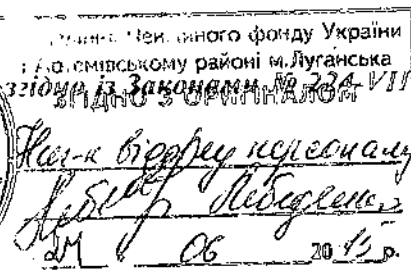 фонду України
районі м.Луганська
згідно із Законами № 234-VII
ЗГІДНО З ОРИГІНАЛОМ
Нач-к відділу персоналу
Лебеденко
24 06 20 15 р.